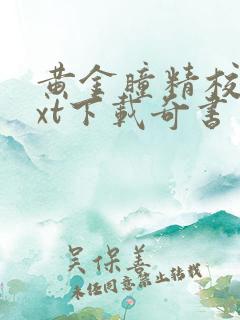 黄金瞳精校
xt下载奇书
吴保善
未经同意禁止转载